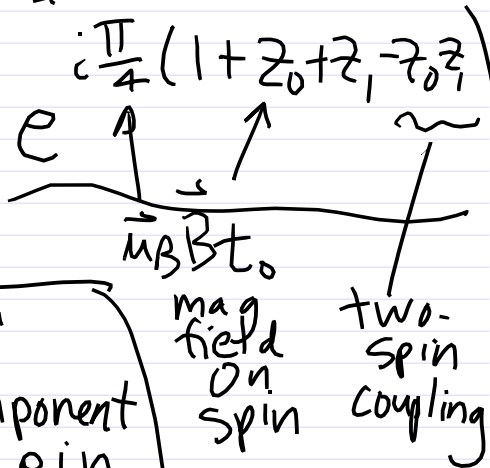 e^{i\frac{\pi}{4}(1+Z_0+Z_1-Z_0Z_1)}
\vec{\mu}_B \vec{B} t_0
mag
field
on
spin
two-
spin
coupling
ponent